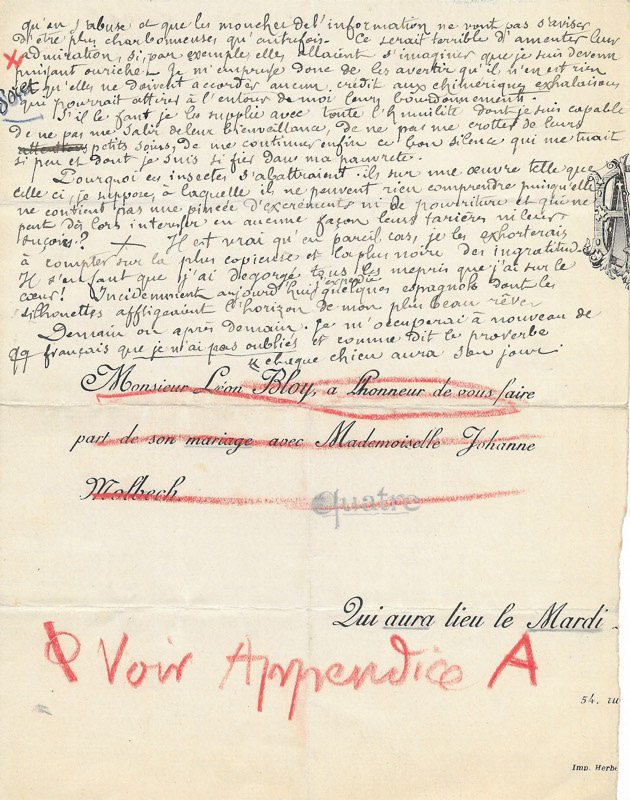 qu'on s'abuse et que les mouches de l'information ne vont pas s'aviser
d'être plus charbonneuses qu'autrefois. Ce serait terrible d'ameuter leur
admiration, si, par exemple, elles allaient s'imaginer que je suis devenu
puissant ou riche! Je m'empresse donc de les avertir qu'il n'en est rien
qu'elles ne doivent accorder aucun crédit aux chimériques exhalaisons
qui pourrait attirer à l'entour de moi leurs bourdonnements.
S'il le faut je les supplie avec toute l'humilité dont je suis capable
de ne pas me salir de leur bienveillance, de ne pas me crotter de leurs
attentions petits soins, de me continuer enfin ce bon silence qui me tuait
si peu et dont je suis si fier dans ma pauvreté.
Pourquoi ces insectes s'abattraient-ils sur une œuvre telle que
celle ci, je suppose, à laquelle ils ne peuvent rien comprendre puisqu'elle
ne contient pas une pincée d'excréments ni de pourriture et que ne
peut dès lors intéresser en aucune façon leurs tarières ni leurs
suçoirs?
Il est vrai qu'en pareil cas, je les exhorterais
à compter sur la plus copieuse et la plus noire des ingratitudes
Il s'en faut que j'ai dégorgé tous les mépris que j'ai sur le
cœur! Incidemment aujourd'hui j'ai expédié quelques espagnols dont les
silhouettes affligeaient l'horizon de mon plus beau rêve
Demain ou après demain je m'occuperai à nouveau de
qq français que je n'ai pas oubliés et comme dit le proverbe
« cheque chien aura son jour.
Monsieur Léon Bloy, a l'honneur de vous faire
part de son mariage avec Mademoiselle Johanne
Molbech
Quatre
Qui aura lieu le Mardi
Voir Appendice A
54, ru
Imp. Herbe